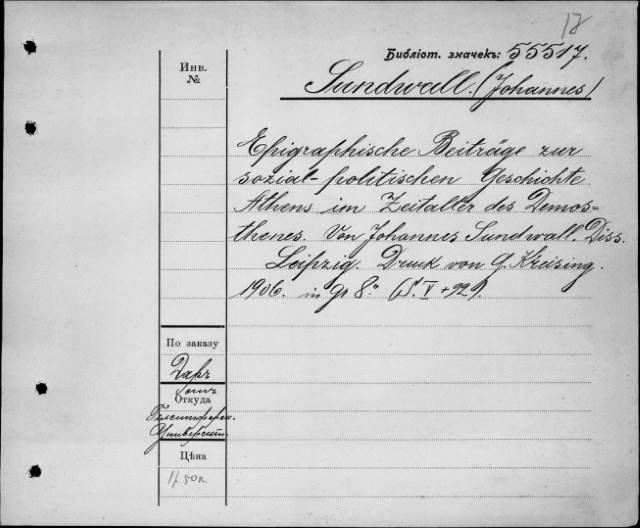 12
Библіот. значекъ: 55517.
Инв.
№
Sundwall. (Johannes)
Epigraphische Beiträge zur
sozial-politischen Geschichte
Athens im Zeitalter des Demos-
thenes. Von Johannes Sundwall. Diss.
Leipzig. Druck von G. Kreising.
1906. in gr 8.° (S. V + 92).
По заказу
Даръ
Откуда
Гельсингфорск.
Университ.
Цѣна